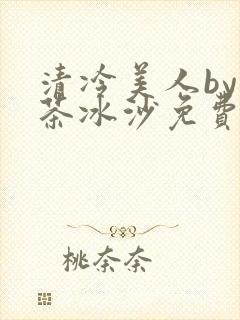 清冷美人by
茶冰沙免費
桃奈奈